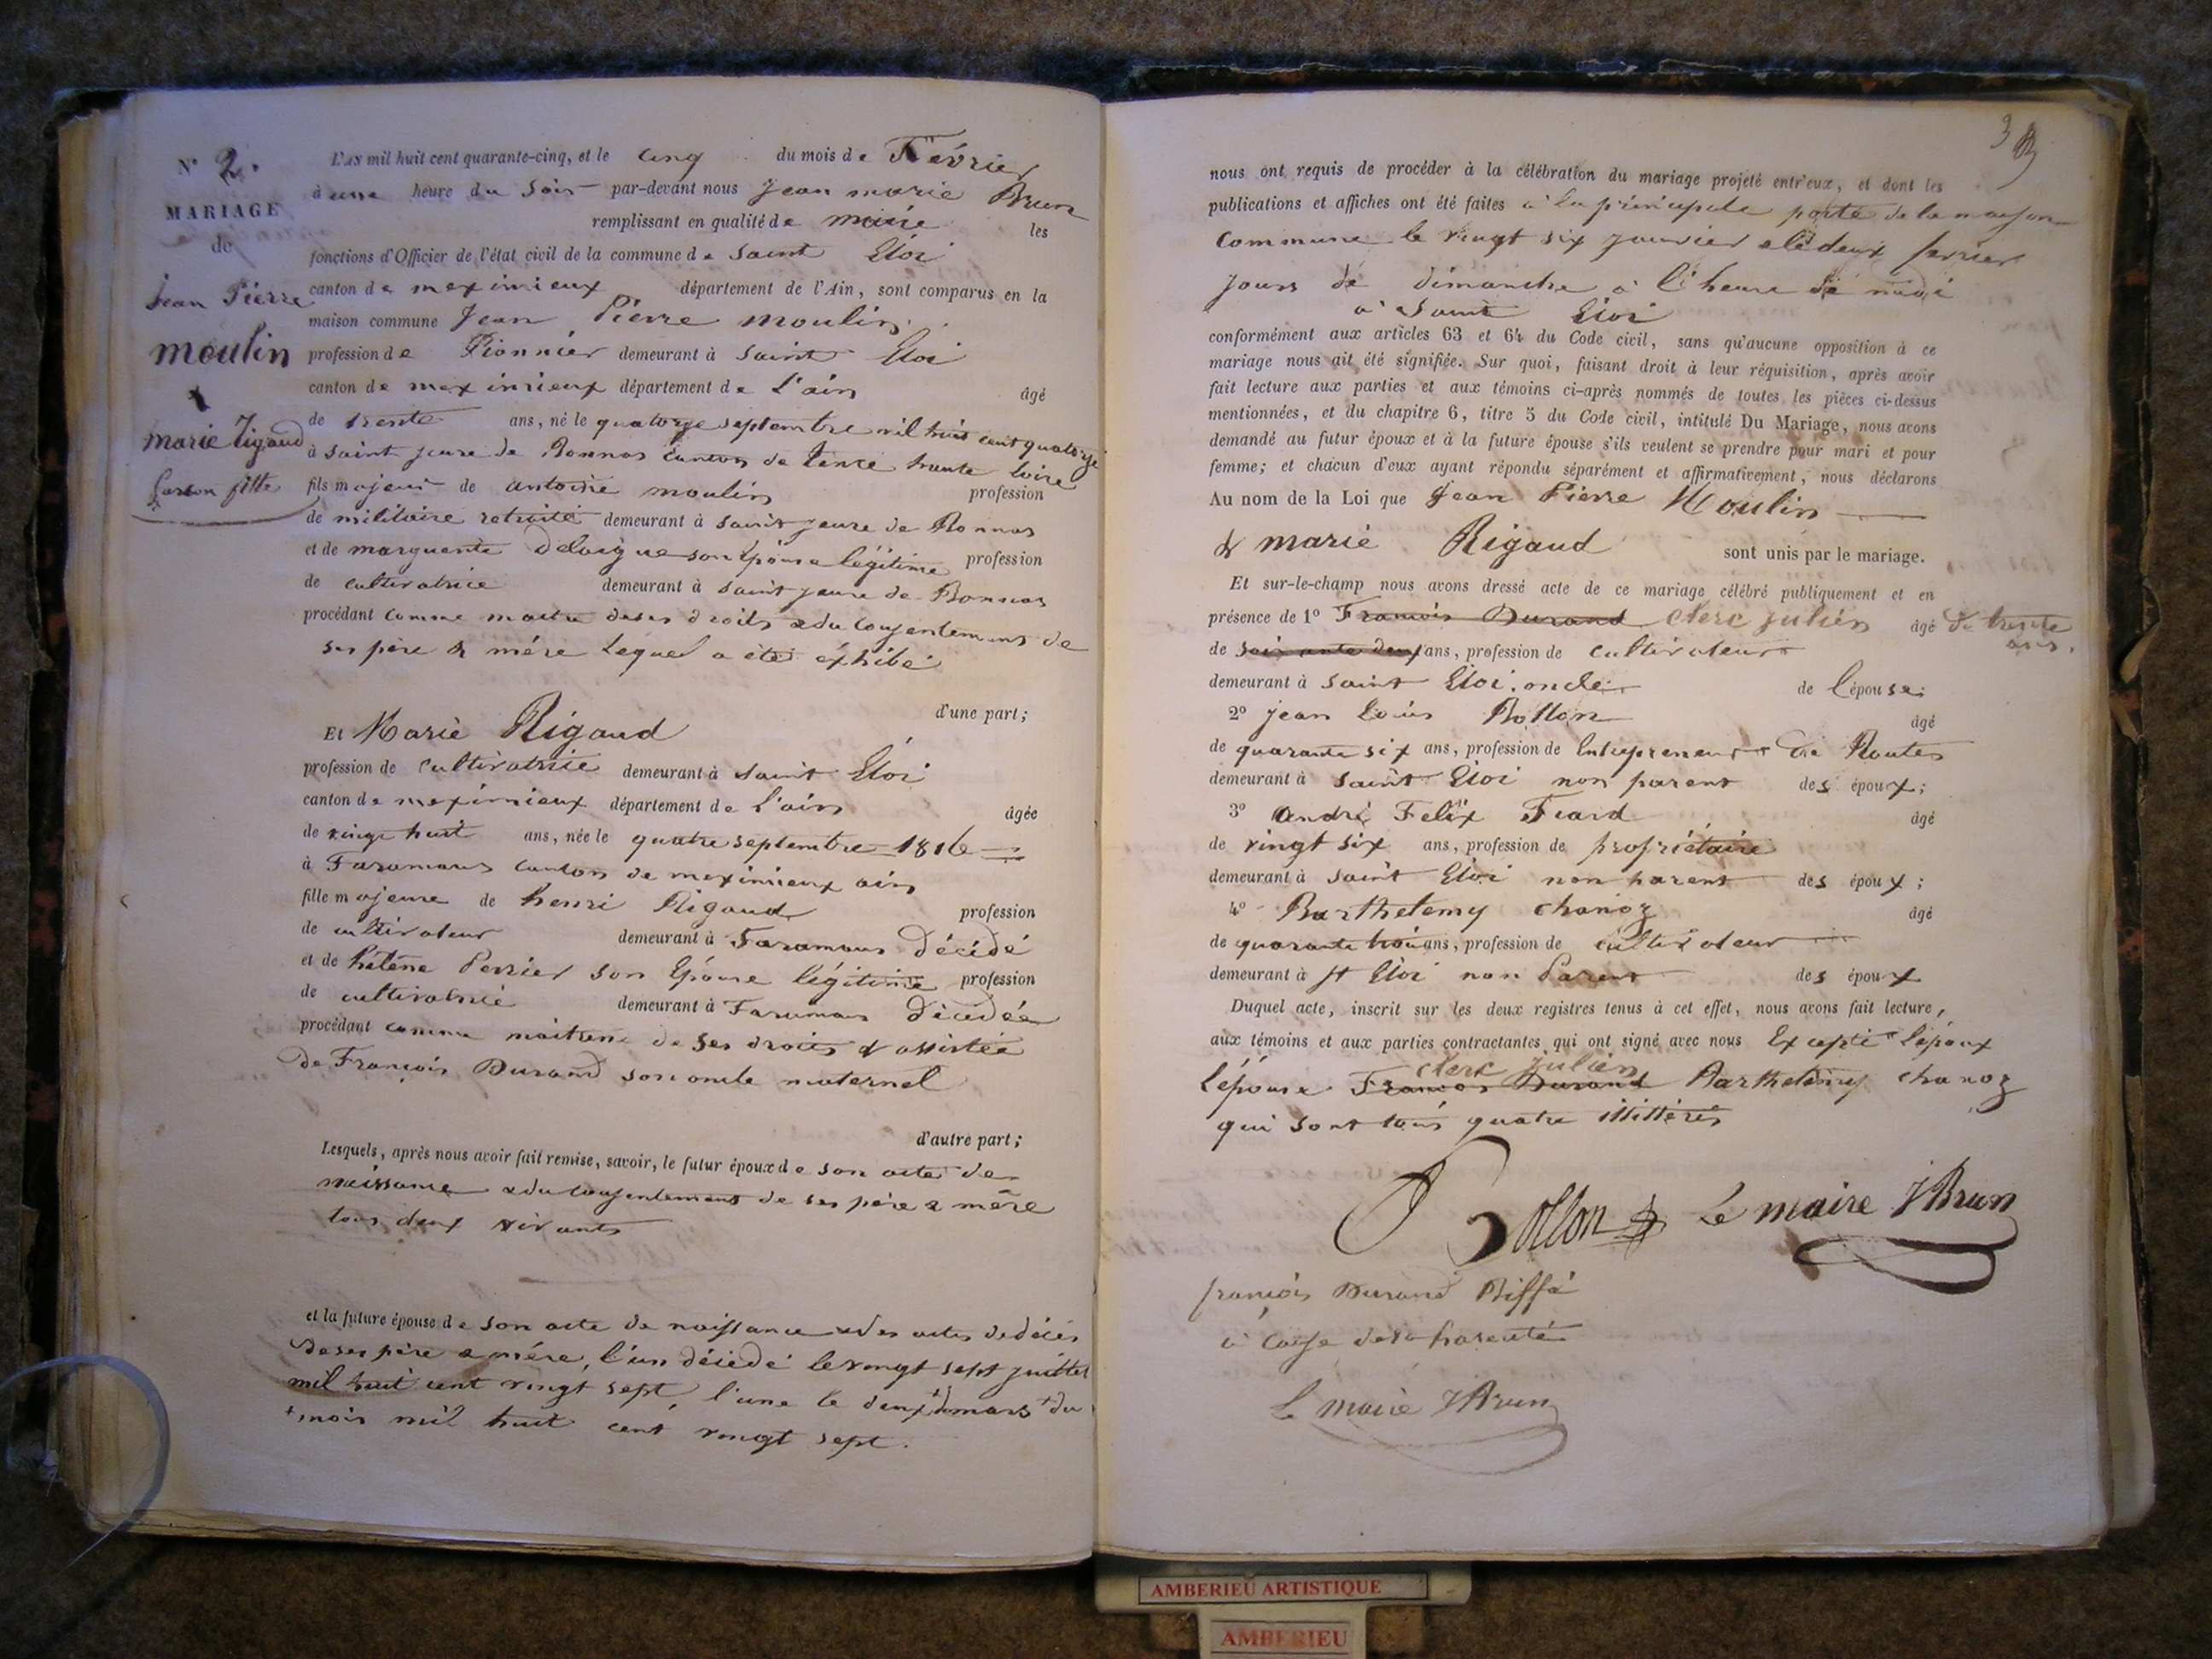 N° 2.
MARIAGE
de
Jean Pierre
moulin
&
marie Rigaud
Garson fille
L'AN mil huit cent quarante-cinq, et le cinq du mois de Février
à une heure du Soir par-devant nous Jean marie Brun
remplissant en qualité de maire les
fonctions d'Officier de l'état civil de la commune de Saint Eloi
canton de meximieux département de l'Ain, sont comparus en la
maison commune Jean Pierre moulin
profession de Pionnier demeurant à Saint Eloi
canton de meximieux département de L'ain âgé
de trente ans, né le quatorze septembre mil huit cent quatorze
à saint jeure de Bonnas canton de tence haute loire
fils majeur de antoine moulin profession
de militaire retraité demeurant à saint jeure de Bonnas
et de marguerite Delaigue son épouse légitime profession
de cultivatrice demeurant à saint jeure de Bonnas
procédant comme maitre de ses droits & du consentement de
ses père & mère lequel a été exhibé
d'une part;
Et Marie Rigaud
profession de cultivatrice demeurant à saint Eloi
canton de meximieux département de L'ain âgée
de vingt huit ans, née le quatre septembre 1816
à Faramans canton de meximieux ain
fille majeure de henri Rigaud profession
de cultivateur demeurant à Faramans Décédé
et de hélène Perrier son Epouse légitime profession
de cultivatrice demeurant à Faramans décédée
procédant comme maitresse de ses droits & assistée
de François Durand son oncle maternel
d'autre part;
Lesquels, après nous avoir fait remise, savoir, le futur époux de son acte de
naissance & du consentement de ses père & mère
tous deux vivants
et la future épouse de son acte de naissance & des actes de décès
de ses père & mère, l'un décédé le vingt sept juillet
mil huit cent vingt sept, l'une le deux mars + du
+ mois mil huit cent vingt sept.
3
nous ont requis de procéder à la célébration du mariage projeté entr'eux, et dont les
publications et affiches ont été faites à la principale porte de la maison
commune le vingt six janvier & le deux fevrier
jours de dimanche à l'heure de midi
à Saint Eloi
conformément aux articles 63 et 64 du Code civil, sans qu'aucune opposition à ce
mariage nous ait été signifiée. Sur quoi, faisant droit à leur réquisition, après avoir
fait lecture aux parties et aux témoins ci-après nommés de toutes les pièces ci-dessus
mentionnées, et du chapitre 6, titre 5 du Code civil, intitulé Du Mariage, nous avons
demandé au futur époux et à la future épouse s'ils veulent se prendre pour mari et pour
femme; et chacun d'eux ayant répondu séparément et affirmativement, nous déclarons
Au nom de la Loi que Jean Pierre Moulin
& marie Rigaud sont unis par le mariage.
Et sur-le-champ nous avons dressé acte de ce mariage célébré publiquement et en
présence de 1° François Durand Clerc Julien âgé de trente ans.
de soixante deux ans, profession de cultivateur
demeurant à saint Eloi oncle de l'épouse;
2° jean Louis Bollon âgé
de quarante six ans, profession de Entrepreneur de Routes
demeurant à saint Eloi non parent des époux;
3° André Felix Fiard âgé
de vingt six ans, profession de propriétaire
demeurant à saint Eloi non parent des époux;
4° Barthelemy chanoz âgé
de quarante trois ans, profession de cultivateur
demeurant à St Eloi non Parent des époux
Duquel acte, inscrit sur les deux registres tenus à cet effet, nous avons fait lecture,
aux témoins et aux parties contractantes qui ont signé avec nous Excepté l'époux
Clerc Julien
l'épouse François Durand Barthelemy chanoz
qui sont tous quatre illittérés
Bollon Le maire J Brun
françois Durand Biffé
à cause de sa parenté
Le maire J Brun
AMBERIEU ARTISTIQUE
AMBERIEU